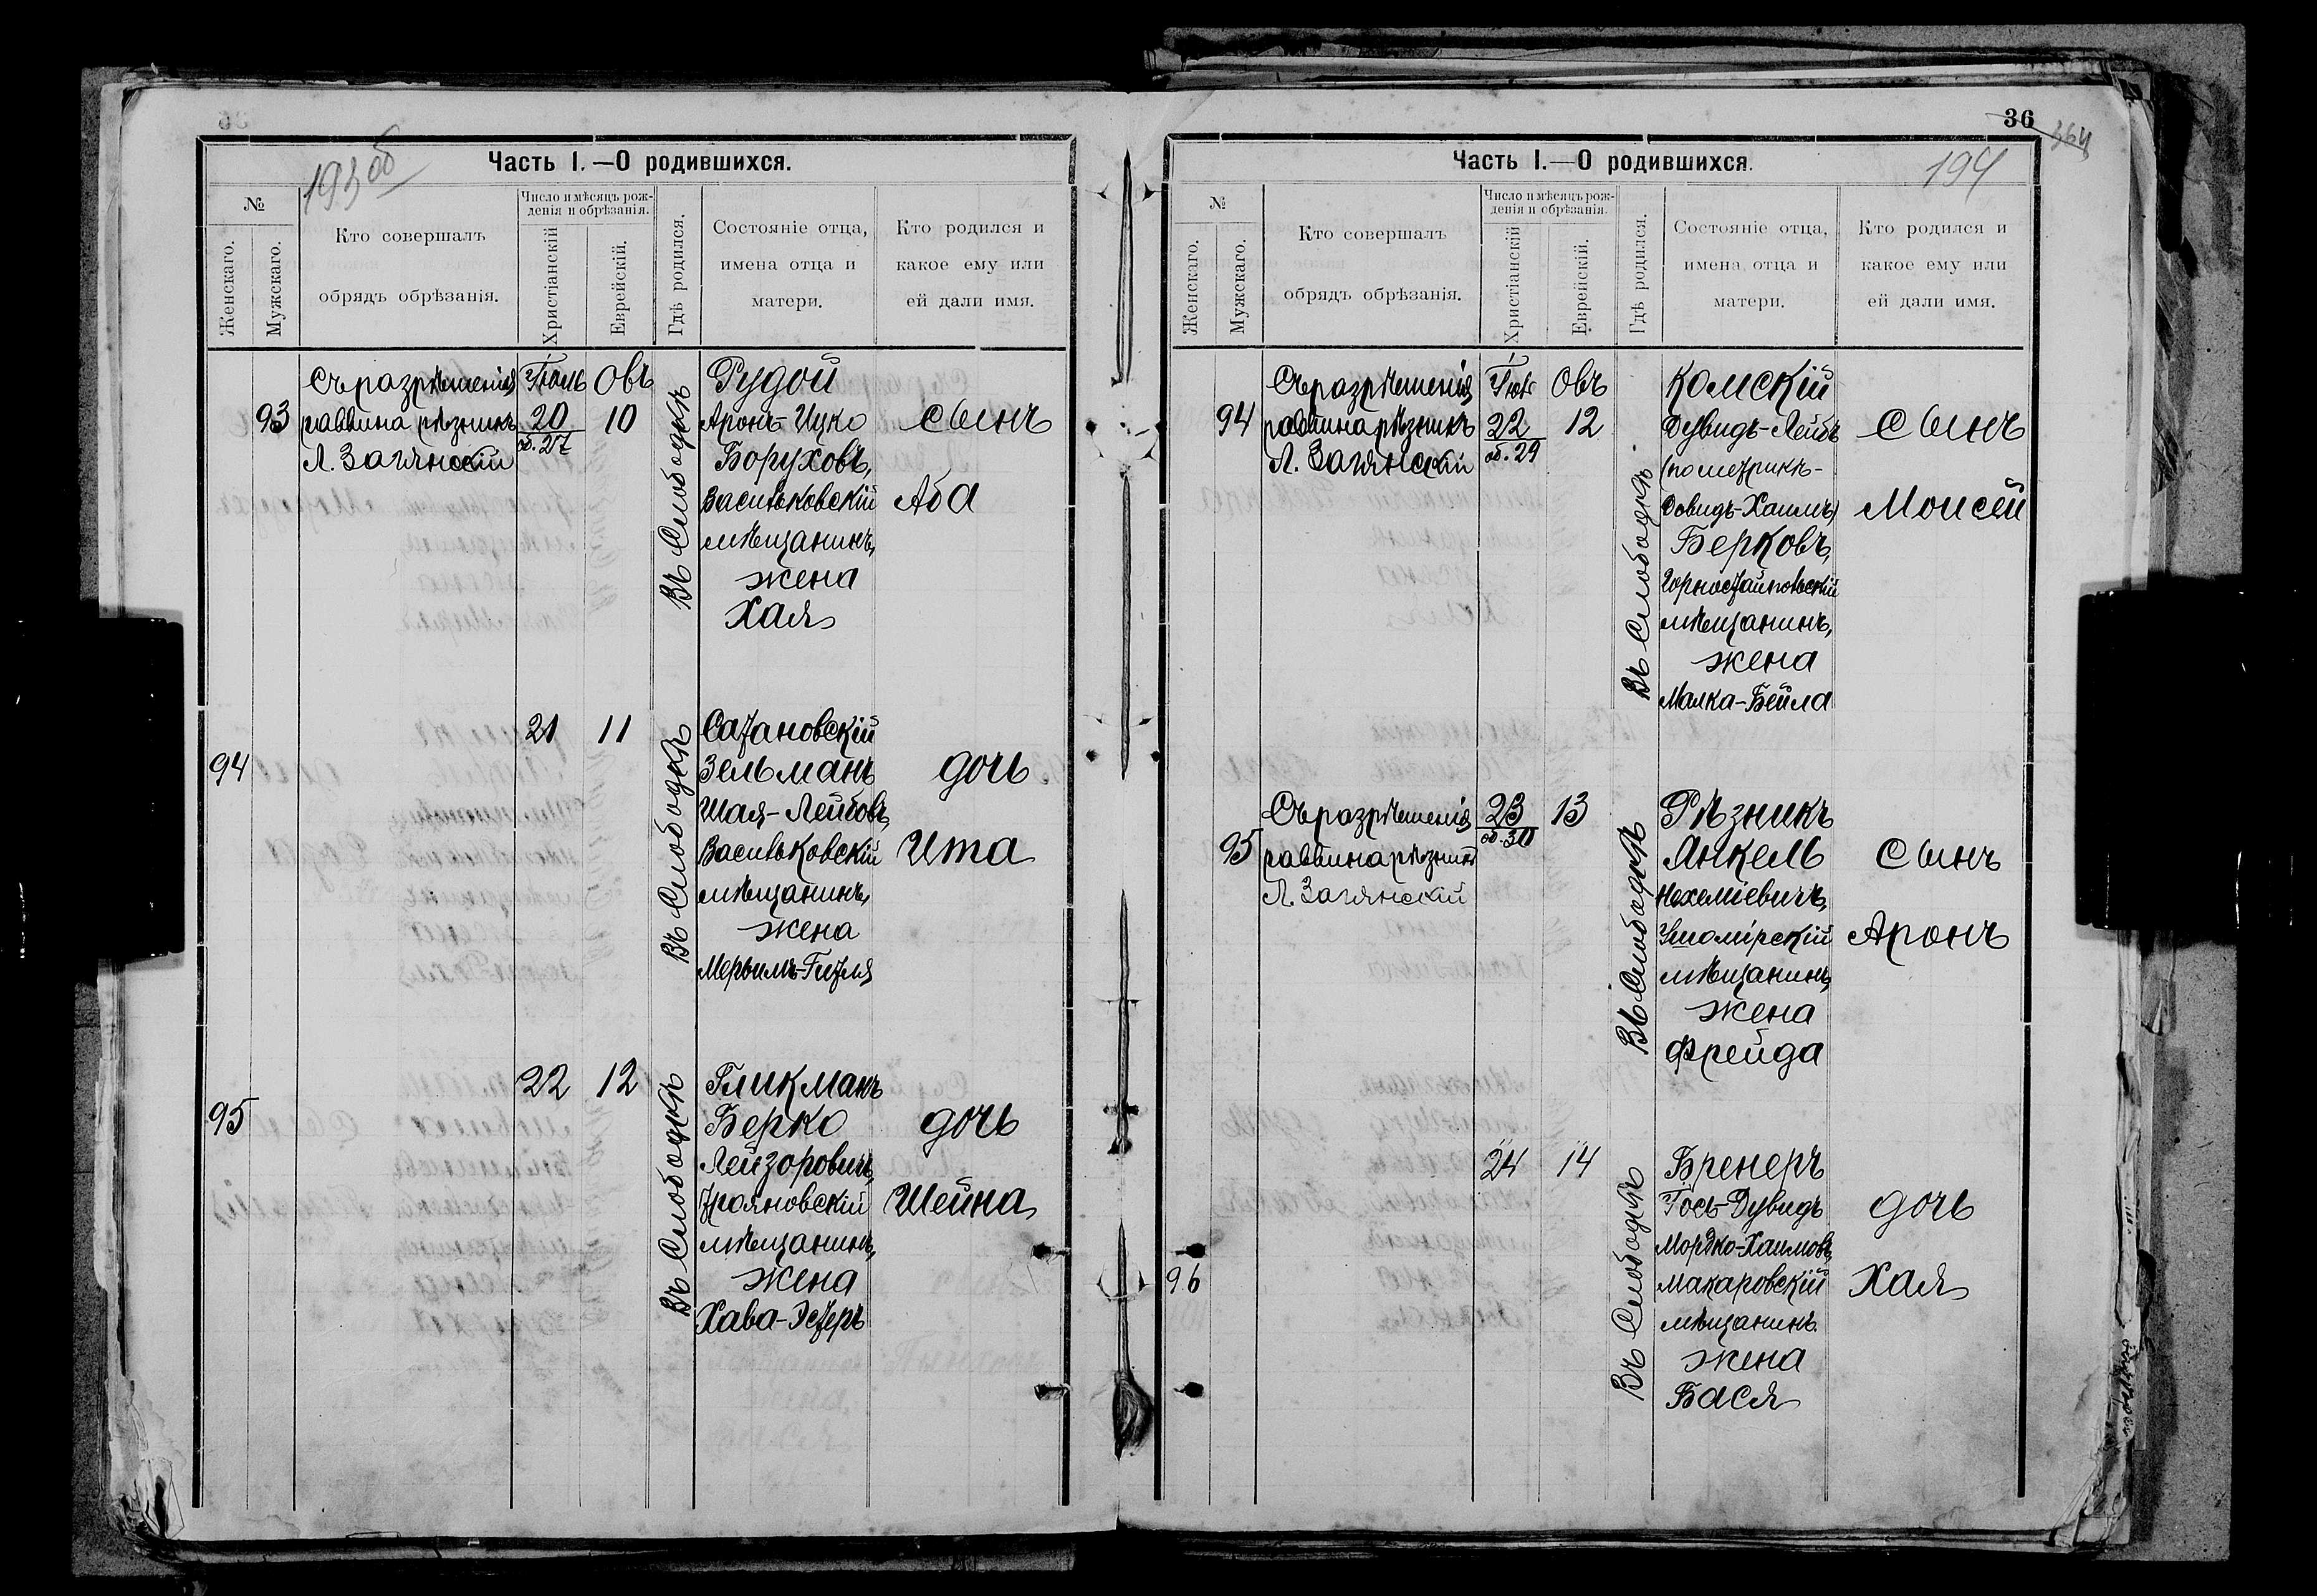 193 об
Часть I.—О родившихся.
№
Женскаго.
Мужскаго.
Кто совершалъ
обрядъ обрѣзанія.
Число и мѣсяцъ рож-
денія и обрѣзанія.
Христіанскій
Еврейскій.
Гдѣ родился.
Состояніе отца,
имена отца и
матери.
Кто родился и
какое ему или
ей дали имя.
93
Съ разрѣшенія
раввина рѣзникъ
Л. Загянскій
Іюль
20
об. 27
Овъ
10
Въ Слободкѣ
Рудой
Аронъ-Ицко
Боруховъ,
Васильковскій
мѣщанинъ,
жена
Хая
сынъ
Аба
94
21
11
Въ Слободкѣ
Сатановскій
Зельманъ
Шая-Лейбовъ,
Васильковскій
мѣщанинъ,
жена
Мерьимъ-Гитля
дочь
Ита
95
22
12
Въ Слободкѣ
Гликманъ
Берко
Лейзоровичъ,
Трояновскій
мѣщанинъ,
жена
Хава-Эстеръ
дочь
Шейна
36
194
Часть I.—О родившихся.
№
Женскаго.
Мужскаго.
Кто совершалъ
обрядъ обрѣзанія.
Число и мѣсяцъ рож-
денія и обрѣзанія.
Христіанскій
Еврейскій.
Гдѣ родился.
Состояніе отца,
имена отца и
матери.
Кто родился и
какое ему или
ей дали имя.
94
Съ разрѣшенія
раввина рѣзникъ
Л. Загянскій
22
об. 29
Овъ
12
Въ Слободкѣ
Комскій
Дувидъ-Лейбъ
(по метрикѣ-
Довидъ-Хаимъ)
Берковъ,
Горностайпольскій
мѣщанинъ,
жена
Малка-Бейла
сынъ
Моисей
95
Съ разрѣшенія
раввина рѣзникъ
Л. Загянскій
23
об. 30
13
Въ Слободкѣ
Рѣзникъ
Янкель
Нехеміевичъ,
мѣщанинъ,
жена
Фрейда
сынъ
Аронъ
96
24
14
Въ Слободкѣ
Бренеръ
Іось-Дувидъ
Мордко-Хаимовъ,
Макаровскій
мѣщанинъ
жена
Бася
дочь
Хая